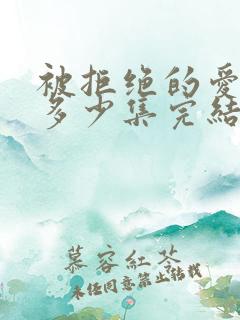 被拒绝的爱
多少集完结
慕容紅苓
未经同意禁止转载